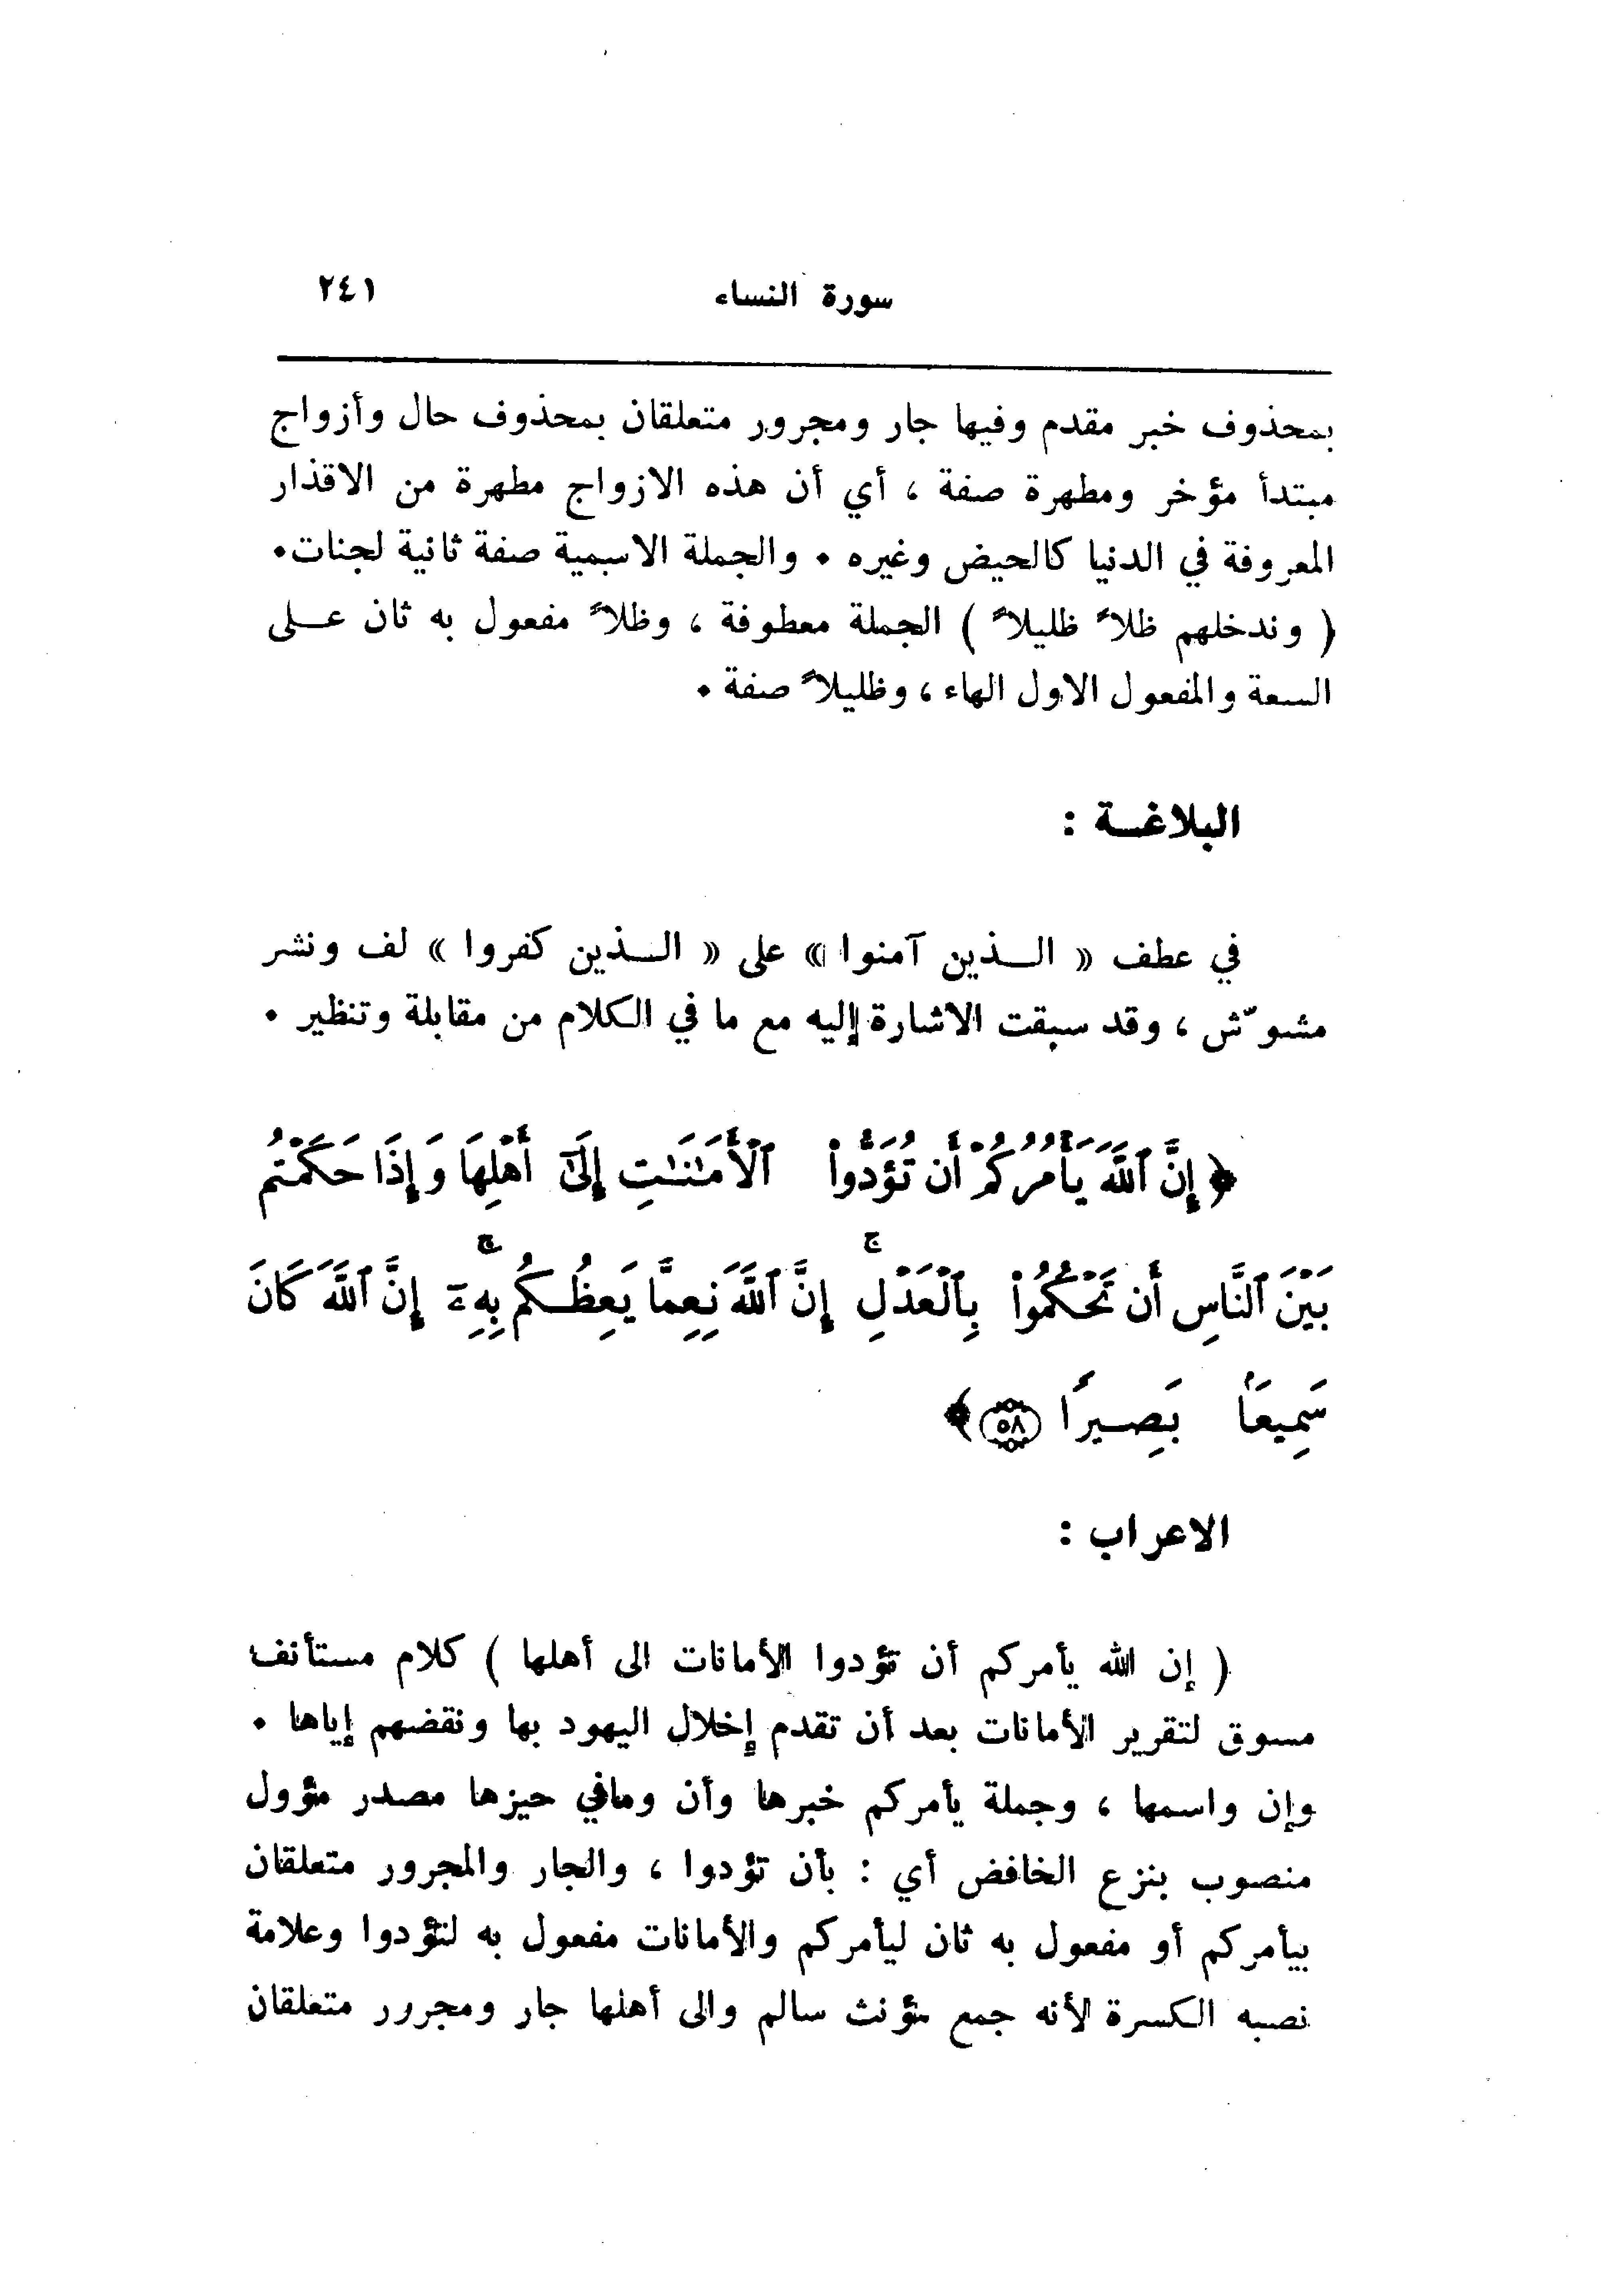 سورة النساء ٢٤١
بمحذوف خبر مقدم وفيها جار ومجرور متعلقان بمحذوف حال وأزواج
مبتدأ مؤخر ومطهرة صفة ، أي أن هذه الازواج مطهرة من الاقذار
المعروفة في الدنيا كالحيض وغيره ٠ والجملة الاسمية صفة ثانية لجنات٠
( وندخلهم ظلاً ظليلاً ) الجملة معطوفة ، وظلاً مفعول به ثان عـلى
السعة والمفعول الاول الهاء ، وظليلاً صفة ٠
البلاغـة :
في عطف « الـذين آمنوا » على « الـذين كفروا » لف ونشر
مشوّش ، وقد سبقت الاشارة إليه مع ما في الكلام من مقابلة وتنظير ٠
﴿ إِنَّ ٱللَّهَ يَأْمُرُكُمْ أَن تُؤَدُّوا۟ ٱلْأَمَـٰنَـٰتِ إِلَىٰٓ أَهْلِهَا وَإِذَا حَكَمْتُم
بَيْنَ ٱلنَّاسِ أَن تَحْكُمُوا۟ بِٱلْعَدْلِ ۚ إِنَّ ٱللَّهَ نِعِمَّا يَعِظُكُم بِهِۦٓ ۚ إِنَّ ٱللَّهَ كَانَ
سَمِيعًۢا بَصِيرًا ٥٨ ﴾
الاعراب :
( إن الله يأمركم أن تؤدوا الأمانات الى أهلها ) كلام مستأنف
مسوق لتقرير الأمانات بعد أن تقدم إخلال اليهود بها ونقضهم إياها ٠
وإن واسمها ، وجملة يأمركم خبرها وأن ومافي حيزها مصدر مؤول
منصوب بنزع الخافض أي : بأن تؤدوا ، والجار والمجرور متعلقان
بيأمركم أو مفعول به ثان ليأمركم والأمانات مفعول به لتؤدوا وعلامة
نصبه الكسرة لأنه جمع مؤنث سالم والى أهلها جار ومجرور متعلقان